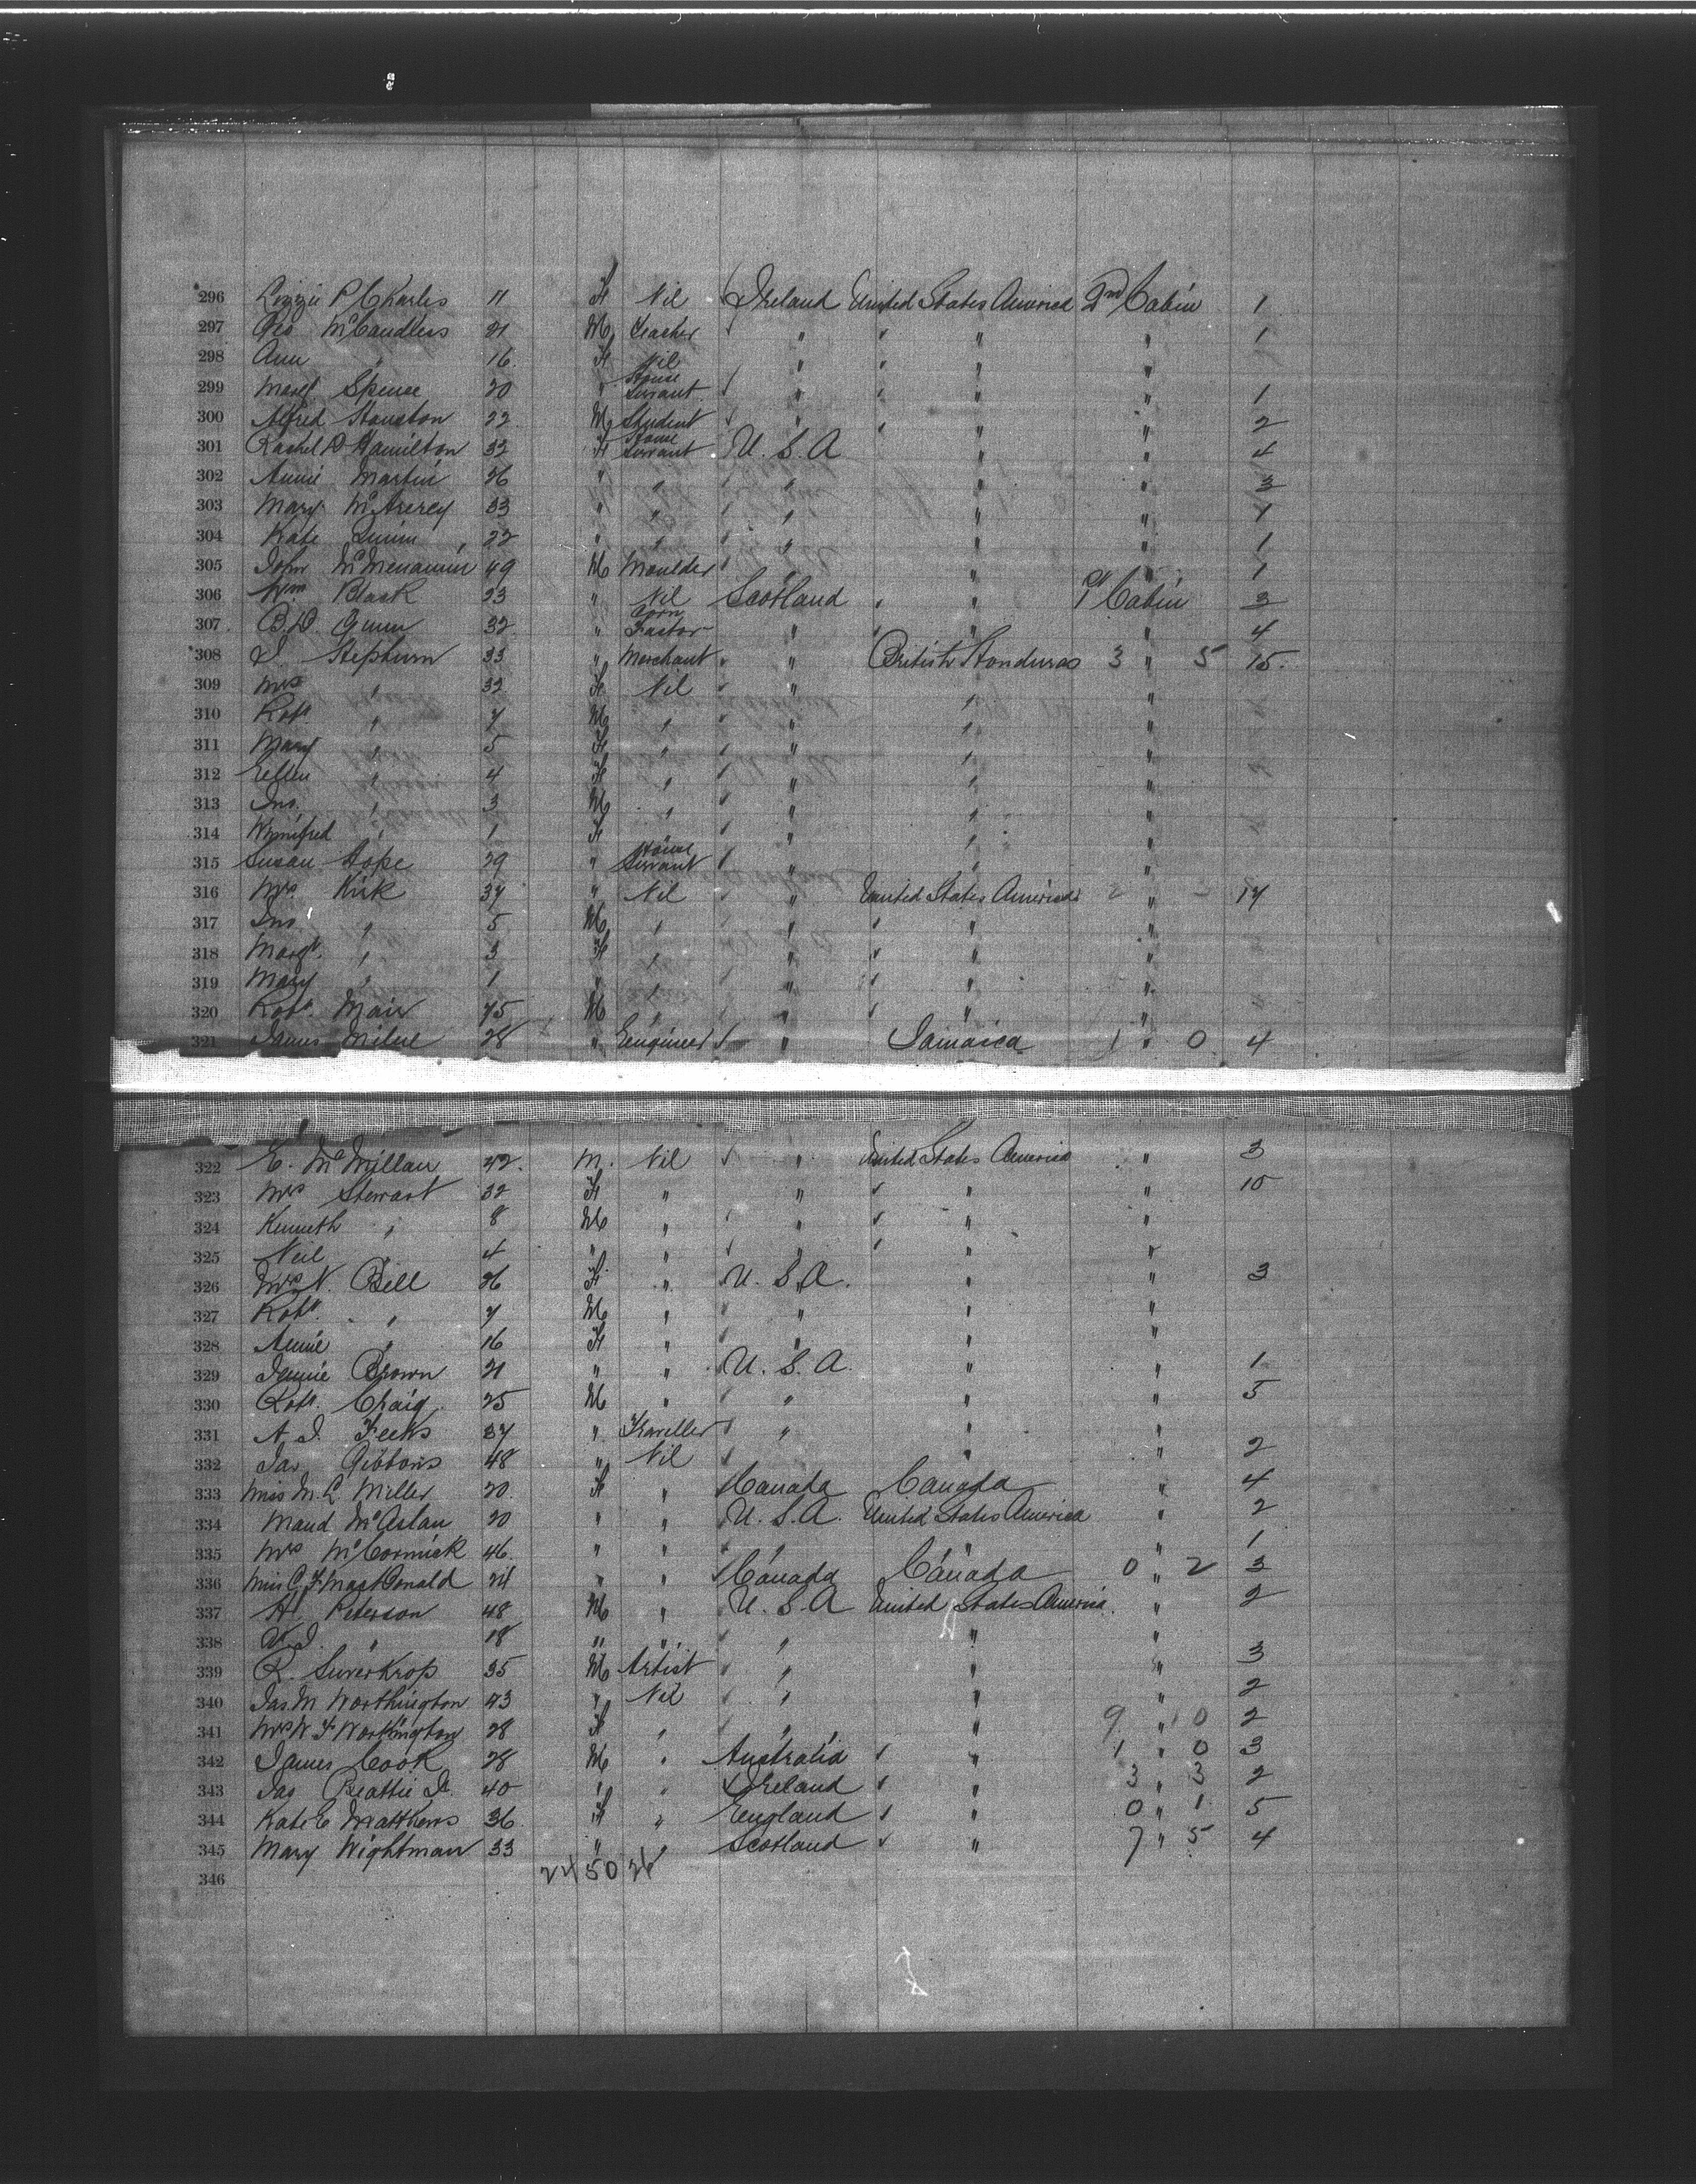 296 Lizzie P Charles 11 F Nil Ireland United States America 2nd Cabin 1
297 Geo McCandless 21 M Teacher " " " 1
298 Ann " 16 F Nil " " "
299 Mary Spence 20 " House Servant " " " 1
300 Alfred Houston 22 M Student " " " 2
301 Rachel Hamilton 32 F House Servant U. S. A " " 4
302 Annie Martin 26 " " " " " 3
303 Mary 33 " " " " " 1
304 Kate Quinn 22 " " " " " 1
305 John McMenamin 49 M Moulder " " " 1
306 Wm Black 23 " Nil Scotland " 1st Cabin 3
307 Gunn 32 " Corn Factor " " " 4
308 Hepburn 33 " Merchant " British Honduras 3 " 5 15
309 Mrs " 32 F Nil " " "
310 Robt " 7 M " " " "
311 Mary " 5 F " " " "
312 Ellen " 4 F " " " "
313 Jno. " 3 M " " " "
314 Winnifred " 1 F " " "
315 Susan Hope 29 " House Servant " " "
316 Mrs Kirk 37 " Nil " United States America " 17
317 Jno " 5 M " " " "
318 Margt. " 3 F " " " "
319 Mary " 1 " " " " "
320 Robt. Mair 75 M " " " "
321 James Milne 28 " Engineer " Jamaica 1 " 0 4
322 E. McMillan 42 M. Nil " United States America " 3
323 Mrs Stewart 32 F " " " " 10
324 Kenneth " 8 M " " " "
325 Neil 4 " " " "
326 Mrs N. Bell 26 F " U. S. A. " " 3
327 Robt. " 7 M " " " "
328 Annie " 16 F " " " "
329 Jennie Brown 21 " " U. S. A. " " 1
330 Robt. Craig 25 M " " " " 5
331 Feeks 37 " Traveller " " "
332 Jas Gibbons 48 " Nil " " 2
333 Miss M. L. Miller 20 F " Canada Canada " 4
334 Maud McAslan 20 " " U. S. A. United States America " 2
335 Mrs McCormick 46 " " " " " 1
336 Miss C. F. MacDonald 24 " " Canada Canada 0 " 2 3
337 H Peterson 48 M " U. S. A United States America " 2
338 " 18 " " " " "
339 R. Suverkrop 35 M Artist " " " 3
340 Jas M Worthington 43 " Nil " " " 2
341 Mrs W F Worthington 28 F " " " 9 " 0 2
342 James Cook 28 M " Australia " 1 " 0 3
343 Jas Beattie Jr 40 " " Ireland " 3 " 3 2
344 Kate E Matthews 36 F " England " 0 " 1 5
345 Mary Wightman 33 " " Scotland " 7 " 5 4
346 24 50 26